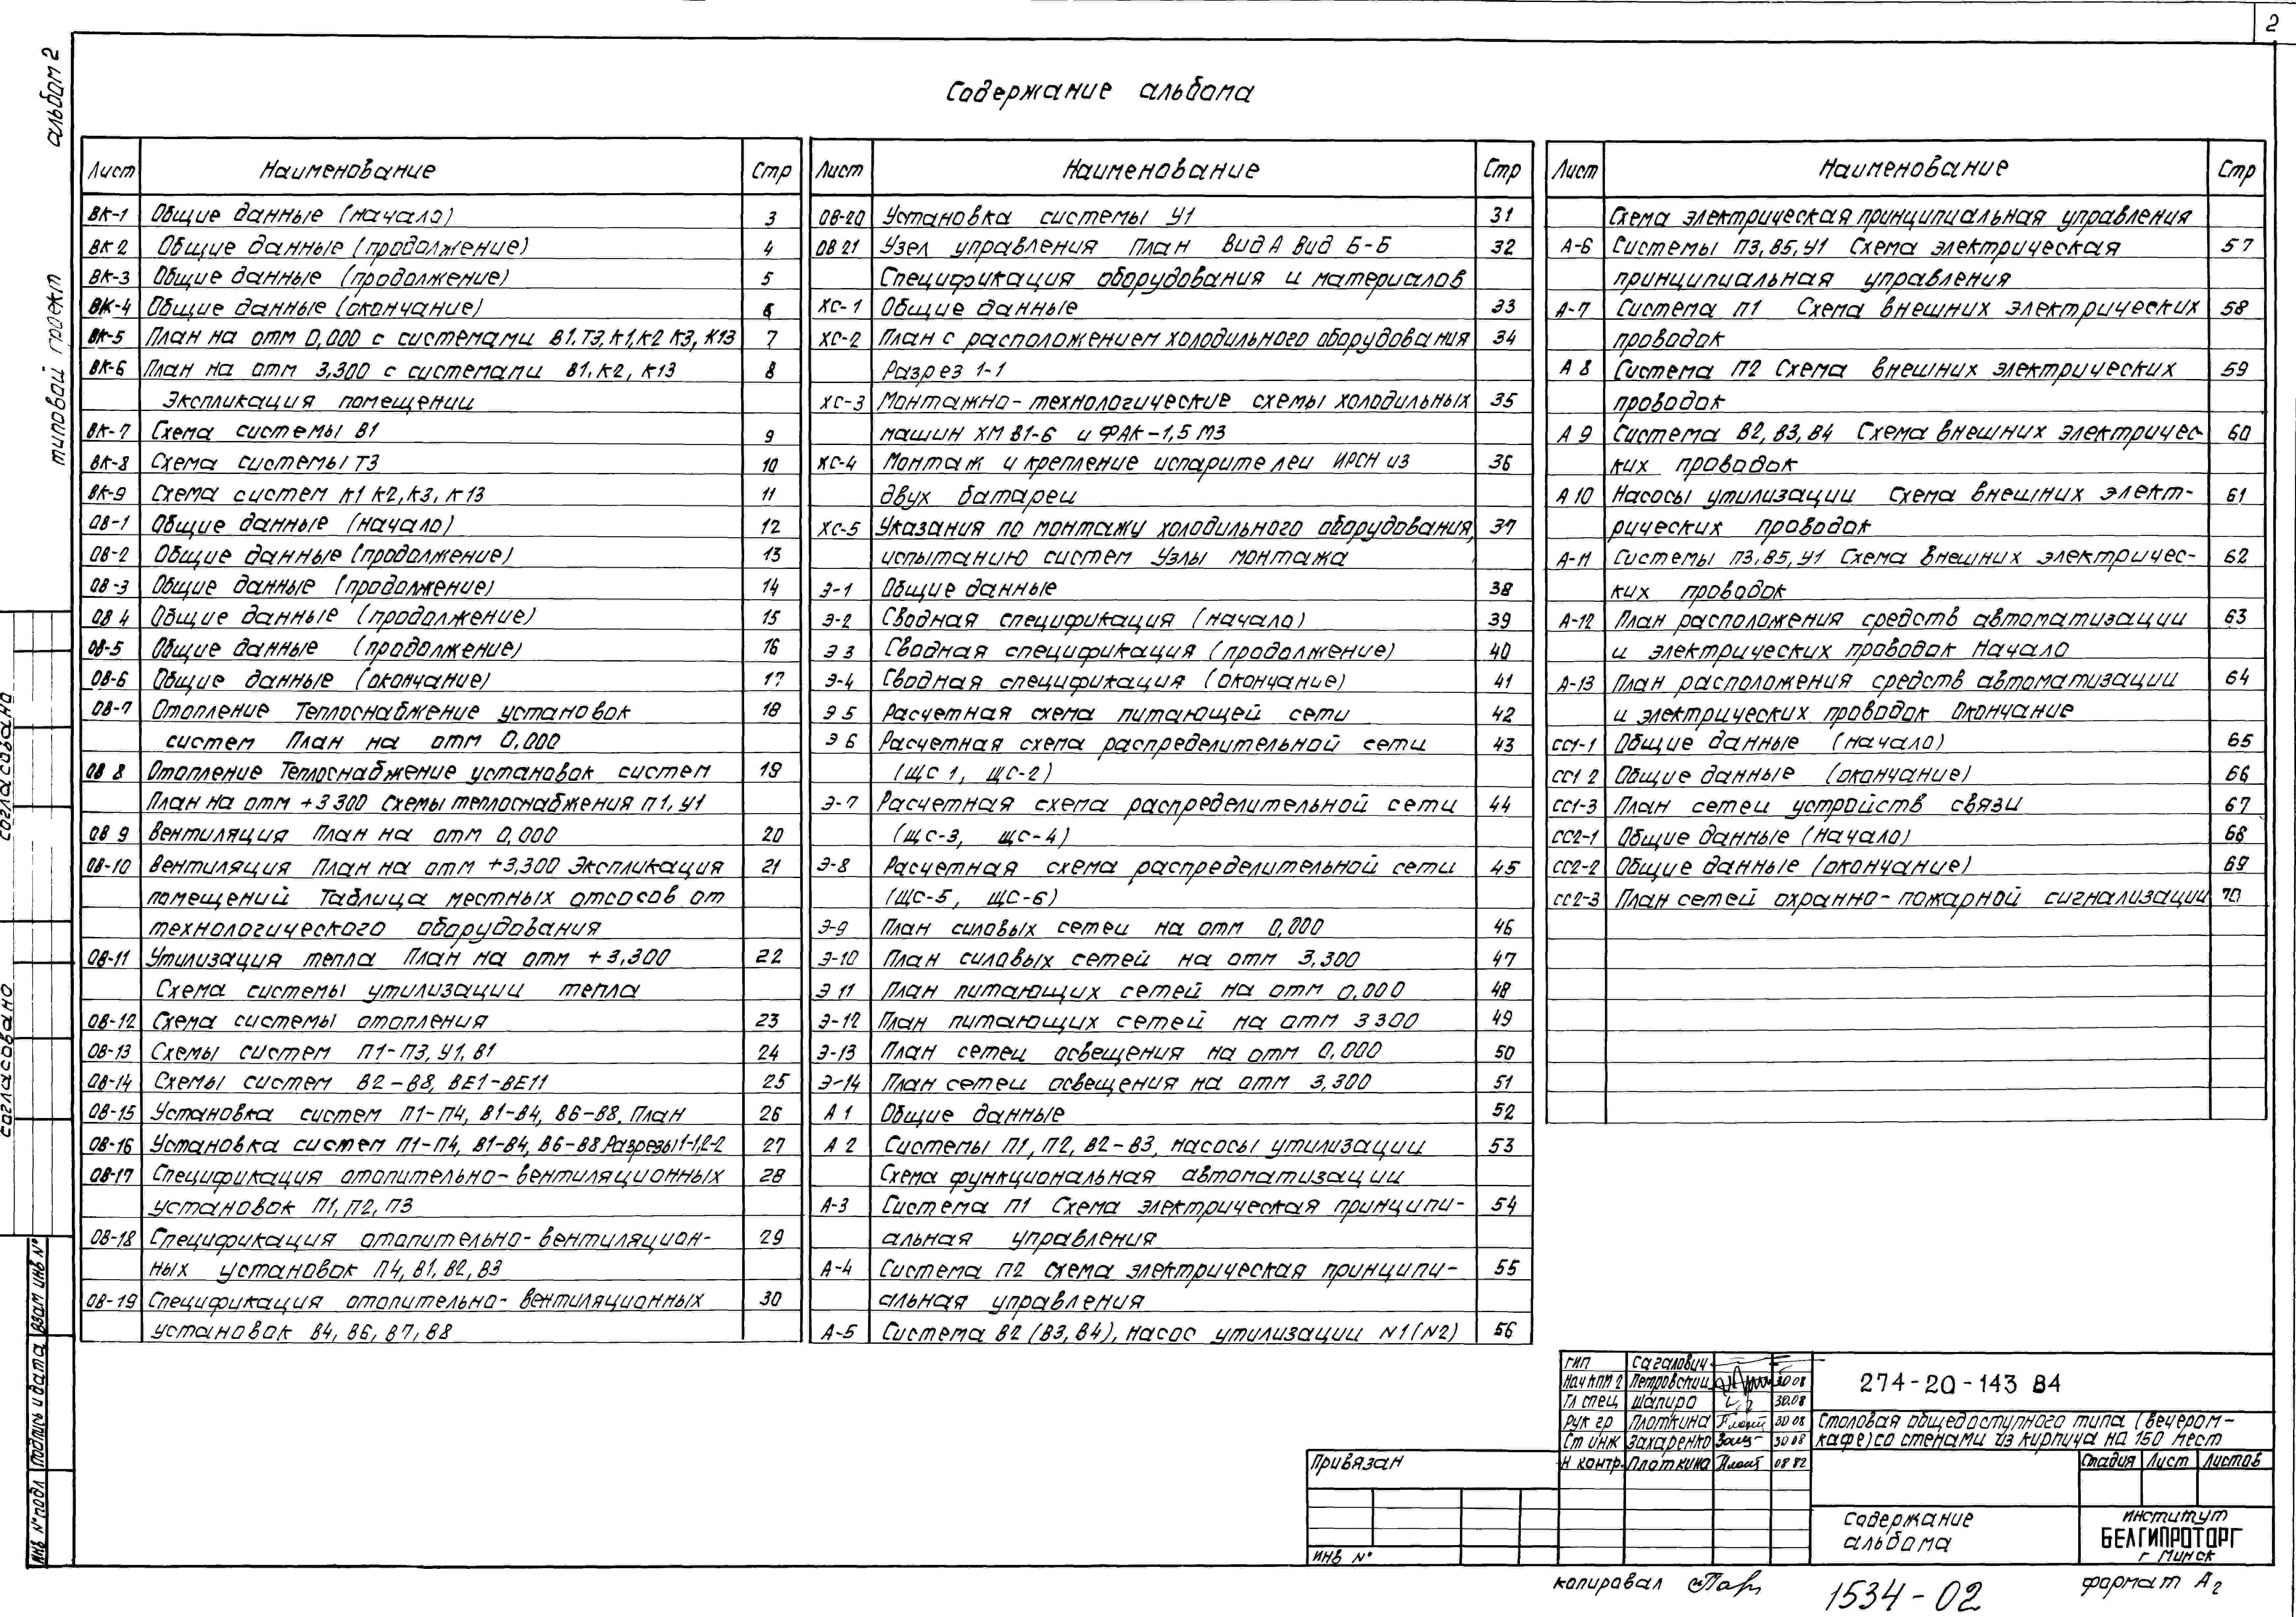 2
альбом 2
типовой проект
Содержание альбома
Лист Наименование Стр
ВК-1 Общие данные (начало) 3
ВК 2 Общие данные (продолжение) 4
ВК-3 Общие данные (продолжение) 5
ВК-4 Общие данные (окончание) 6
ВК-5 План на отм 0,000 с системами В1.Т3, К1, К2 К3, К13 7
ВК-6 План на отм 3,300 с системами В1, К2, К13 8
Экспликация помещении
ВК-7 Схема системы В1 9
ВК-8 Схема системы Т3 10
ВК-9 Схема систем К1 К2, К3, К13 11
ОВ-1 Общие данные (начало) 12
ОВ-2 Общие данные (продолжение) 13
ОВ-3 Общие данные (продолжение) 14
ОВ 4 Общие данные (продолжение) 15
ОВ-5 Общие данные (продолжение) 16
ОВ-6 Общие данные (окончание) 17
ОВ-7 Отопление Теплоснабжение установок 18
систем План на отм 0,000
ОВ 8 Отопление Теплоснабжение установок систем 19
План на отм +3 300 Схемы теплоснабжения П1, У1
ОВ 9 Вентиляция План на отм 0,000 20
ОВ-10 Вентиляция План на отм +3,300 Экспликация 21
помещений Таблица местных отсосов от
технологического оборудования
ОВ-11 Утилизация тепла План на отм +3,300 22
Схема системы утилизации тепла
ОВ-12 Схема системы отопления 23
ОВ-13 Схемы систем П1-П3, У1, В1 24
ОВ-14 Схемы систем В2-В8, ВЕ1-ВЕ11 25
ОВ-15 Установка систем П1-П4, В1-В4, В6-В8. План 26
ОВ-16 Установка систем П1-П4, В1-В4, В6-В8 Разрезы 1-1, 2-2 27
ОВ-17 Спецификация отопительно-вентиляционных 28
установок П1, П2, П3
ОВ-18 Спецификация отопительно-вентиляцион- 29
ных установок П4, В1, В2, В3
ОВ-19 Спецификация отопительно-вентиляционных 30
установок В4, В6, В7, В8
Лист Наименование Стр
ОВ-20 Установка системы У1 31
ОВ 21 Узел управления План Вид А Вид Б-Б 32
Спецификация оборудования и материалов
ХС-1 Общие данные 33
ХС-2 План с расположением холодильного оборудования 34
Разрез 1-1
ХС-3 Монтажно-технологические схемы холодильных 35
машин ХМ В1-6 и ФАК-1,5 М3
ХС-4 Монтаж и крепление испарителеи ИРСН из 36
двух батареи
ХС-5 Указания по монтажу холодильного оборудования, 37
испытанию систем Узлы монтажа
Э-1 Общие данные 38
Э-2 Сводная спецификация (начало) 39
Э 3 Сводная спецификация (продолжение) 40
Э-4 Сводная спецификация (окончание) 41
Э 5 Расчетная схема питающей сети 42
Э 6 Расчетная схема распределительной сети 43
(ЩС 1, ЩС-2)
Э-7 Расчетная схема распределительной сети 44
(ЩС-3, ЩС-4)
Э-8 Расчетная схема распределительной сети 45
(ЩС-5, ЩС-6)
Э-9 План силовых сетеи на отм 0,000 46
Э-10 План силовых сетей на отм 3,300 47
Э 11 План питающих сетей на отм 0,000 48
Э-12 План питающих сетей на отм 3 300 49
Э-13 План сетеи освещения на отм 0,000 50
Э-14 План сетеи освещения на отм 3,300 51
А 1 Общие данные 52
А 2 Системы П1, П2, В2-В3, насосы утилизации 53
Схема функциональная автоматизации
А-3 Система П1 Схема электрическая принципи- 54
альная управления
А-4 Система П2 Схема электрическая принципи- 55
альная управления
А-5 Система В2 (В3, В4), насос утилизации N1 (N2) 56
Лист Наименование Стр
Схема электрическая принципиальная управления
А-6 Системы П3, В5, У1 Схема электрическая 57
принципиальная управления
А-7 Система П1 Схема внешних электрических 58
проводок
А 8 Система П2 Схема внешних электрических 59
проводок
А 9 Система В2, В3, В4 Схема внешних электричес- 60
ких проводок
А 10 Насосы утилизации Схема внешних элект- 61
рических проводок
А-11 Системы П3, В5, У1 Схема внешних электричес- 62
ких проводок
А-12 План расположения средств автоматизации 63
и электрических проводок Начало
А-13 План расположения средств автоматизации 64
и электрических проводок Окончание
СС1-1 Общие данные (начало) 65
СС1 2 Общие данные (окончание) 66
СС1-3 План сетеи устройств связи 67
СС2-1 Общие данные (начало) 68
СС2-2 Общие данные (окончание) 69
СС2-3 План сетей охранно-пожарной сигнализации 70
согласовано
согласовано
Взам инв №
Подпись и дата
Инв № подл
ГИП Сагалович
Нач КПМ 2 Петровскии 30 08
Гл спец Шапиро 30.08
Рук гр Плоткина 30 08
Ст инж Захаренко 30 08
Н контр. Плоткина 08 82
274-20-143 84
Столовая общедоступного типа (вечером-
кафе) со стенами из кирпича на 150 мест
Стадия Лист Листов
Привязан
инв №
Содержание
альбома
институт
БЕЛГИПРОТОРГ
г Минск
копировал
1534-02
формат А2